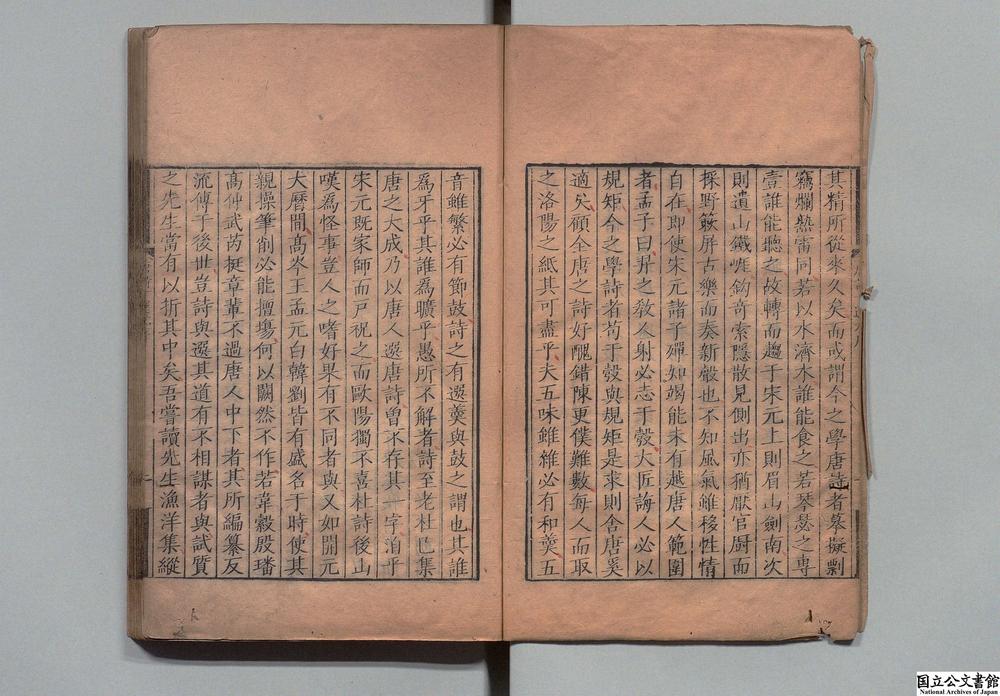 其精所從來久矣而或謂今之學唐詩者摹擬剽
竊爛熟雷同若以水濟水誰能食之若琴瑟之專
壹誰能聽之故轉而趨于宋元上則眉山劍南次
則遺山鐵崖鈎奇索隱散見側出亦猶厭官厨而
採野蔌屏古樂而奏新聲也不知風氣雖移性情
自在即使宋元諸子殫知竭能未有越唐人範圍
者孟子曰羿之敎人射必志于彀大匠誨人必以
規矩今之學詩者苟于彀與規矩是求則舍唐奚
適矣顧全唐之詩好醜錯陳更僕難數每人而取
之洛陽之紙其可盡乎夫五味雖雜必有和羹五
音雖繁必有節鼓詩之有選羹與鼓之謂也其誰
爲牙乎其誰爲曠乎愚所不解者詩至老杜巳集
唐之大成乃以唐人選唐詩曾不存其一字洎乎
宋元既家師而戸祝之而歐陽獨不喜杜詩後山
嘆爲怪事豈人之嗜好果有不同者與又如開元
大曆間髙岑王孟元白韓劉皆有盛名于時使其
親操筆削必能擅塲何以闕然不作若韋縠殷璠
髙仲武芮挺章輩不過唐人中下者其所編纂反
流傳于後世豈詩與選其道有不相謀者與試質
之先生當有以折其中矣吾嘗讀先生漁洋集縱
国立公文書館
National Archives of Japan